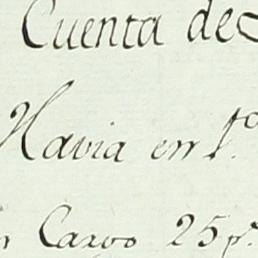 Cuenta de
Havia en 1.º
Cargo 25 p.s